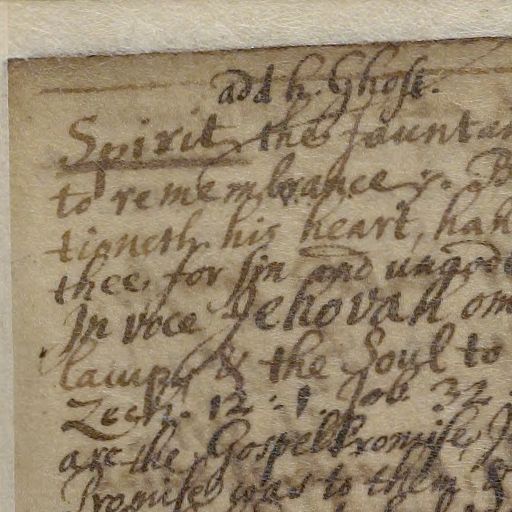 add h. Ghost.
Spirit the
to remembrance
tioneth his heart, hah
thee, for sin and ungod
In voce Jehovah om
lamp, & the Soul to
Zech. 12 : 1 Job 32
are the Gospel Promise,
Promise was to them